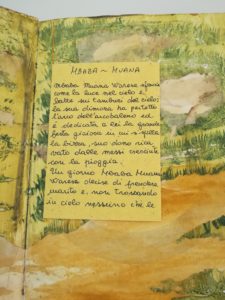 MBABA ~ MUANA
Mbaba Muana Waresa
come la luce nel cielo e
batte sui tamburi del cielo;
la sua dimora ha perfetto
l'arco dell'arcobaleno ed
è dedicata a lei la grande
festa gioiosa in cui si
la birra, suo dono rica
vato dalle messi cresciute
con la pioggia.
Un giorno Mbaba Muana
Waresa decise di prendere
marito e, non trovando
in cielo nessuno che le